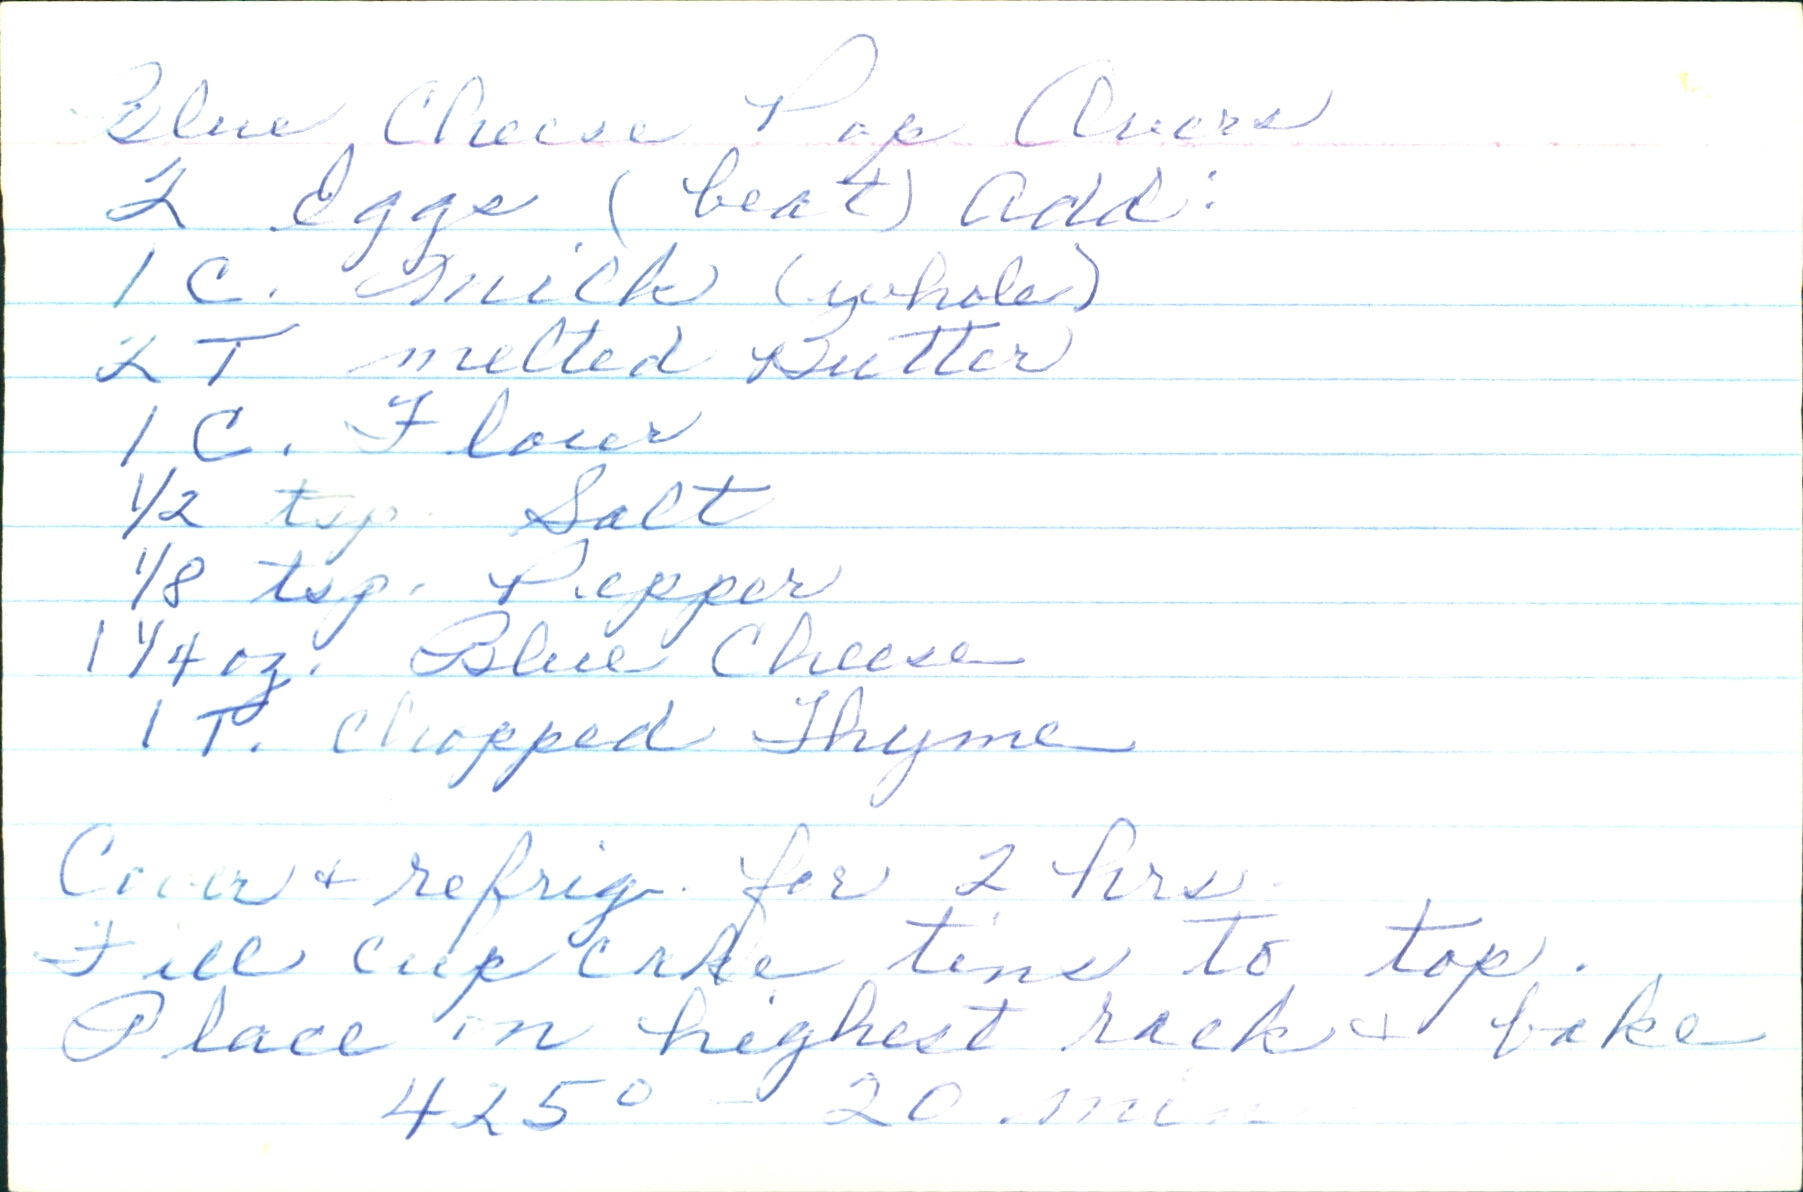 Blue Cheese Pop Overs
2 Eggs (beat) Add:
1 C. milk (whole)
2 T melted Butter
1 C. Flour
1/2 tsp. Salt
1/8 tsp. Pepper
1 1/4 oz. Blue Cheese
1 T. Chopped Thyme
Cover & refrig. for 2 hrs.
Fill cup cake tins to top.
Place in highest rack & bake
425° - 20 min